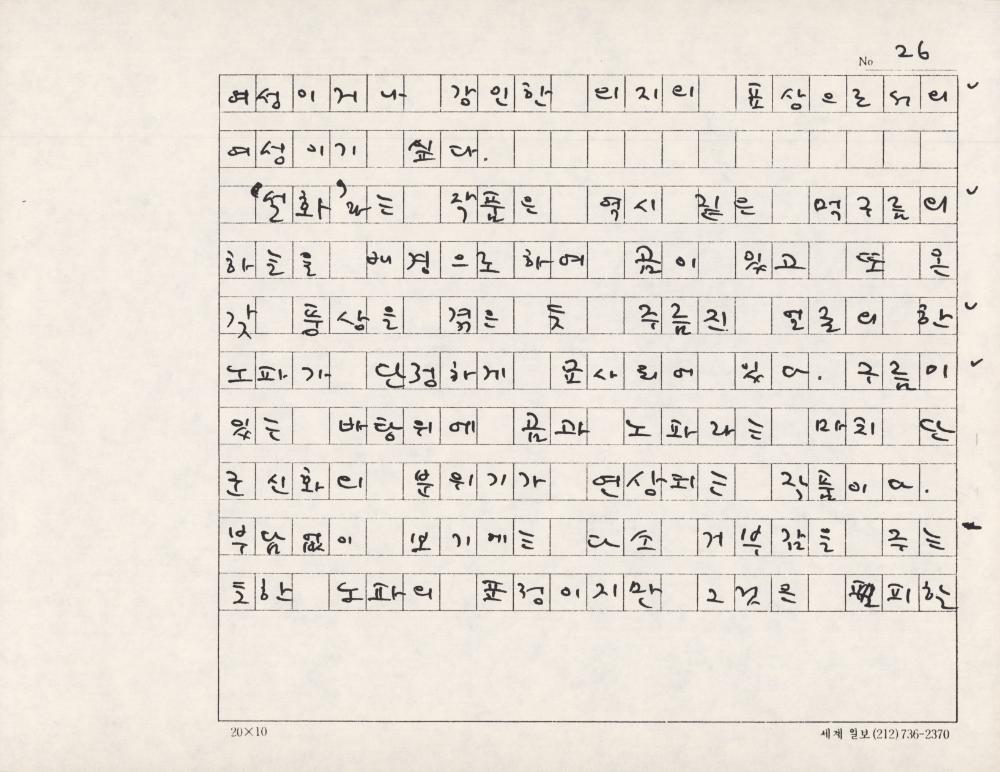 No 26
여성이거나 강인한 의지의 표상으로서의
여성이기 싶다.
'설화'라는 작품은 역시 짙은 먹구름의
하늘을 배경으로 하여 곰이 있고 또 온
갖 풍상을 겪은 듯 주름진 얼굴의 한
노파가 단정하게 곰사회에 있다. 구름이
있는 바탕위에 곰과 노파라는 마치 단
군신화의 분위기가 연상되는 작품이다.
부담없이 보기에는 다소 거부감을 주는
듯한 노파의 표정이지만 그것은 피한
20×10
세계일보 (212) 736-2370